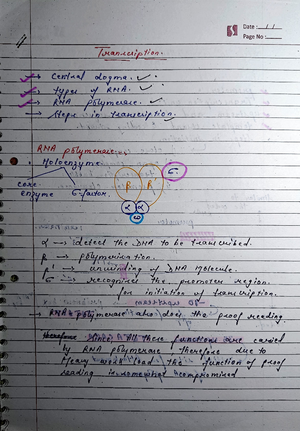 Date : __/__/__
Page No :
Transcription.
→ Central dogma.
→ types of RNA.
→ RNA polymerase.
→ steps in transcription.
RNA polymerase:-
Holoenzyme
σ
β β'
core-
enzyme σ-factor.
α α
ω
α → detect the DNA to be transcribed.
β → polymerisation.
β' → unwinding of DNA Molecule.
σ → recognises the promoter region
for initiation of transcription.
→ RNA polymerase also does the proof reading.
Therefore Since, All these functions are carried
by RNA polymerase therefore due to
Heavy work load the function of proof
reading is somewhat compromised